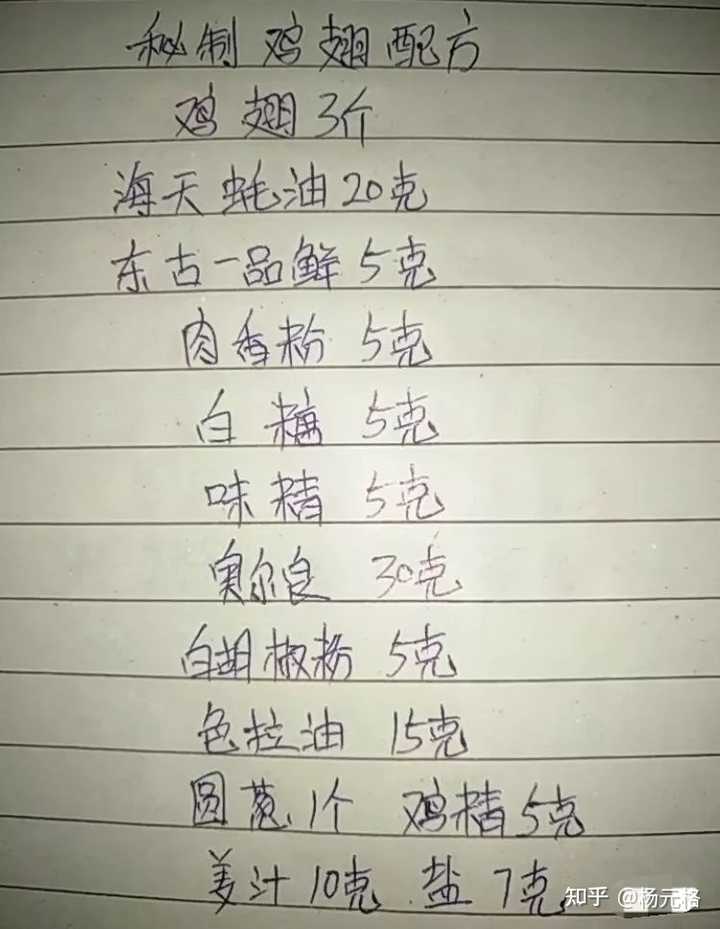 秘制鸡翅配方
鸡翅3个
海天蚝油20克
东古一品鲜5克
肉香粉 5克
白糖 5克
味精 5克
奥尔良 30克
白胡椒粉 5克
色拉油 15克
圆葱1个 鸡精5克
姜汁10克 盐7克
知乎 @杨元格